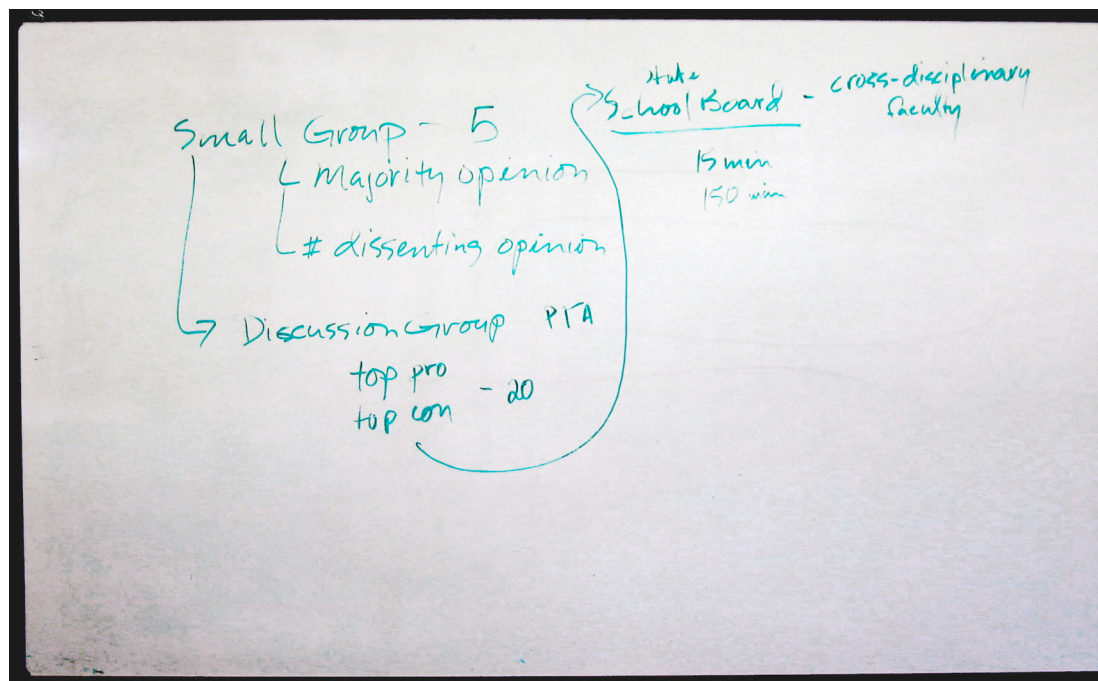 Small Group - 5
Majority opinion
# dissenting opinion
Discussion Group PTA
top pro
top con - 20
State
School Board - cross-disciplinary
faculty
15 min
150 min